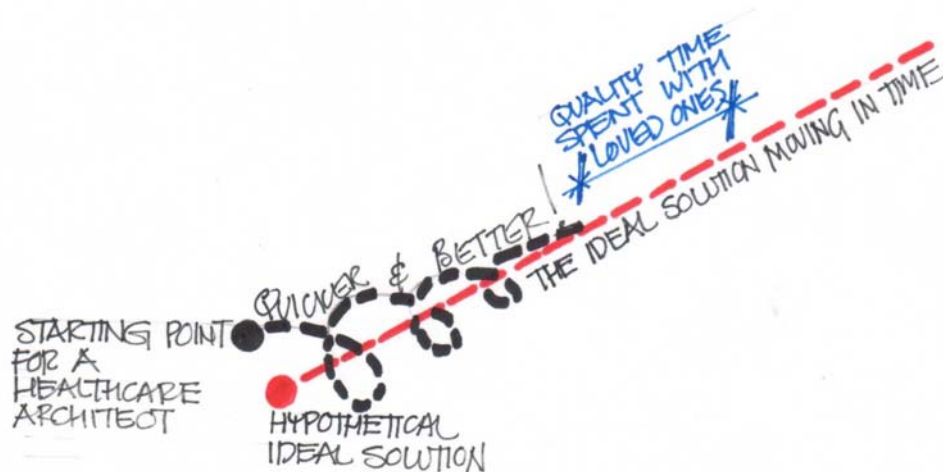 QUALITY TIME
SPENT WITH
LOVED ONES
THE IDEAL SOLUTION MOVING IN TIME
QUICKER & BETTER!
STARTING POINT
FOR A
HEALTHCARE
ARCHITECT
HYPOTHETICAL
IDEAL SOLUTION